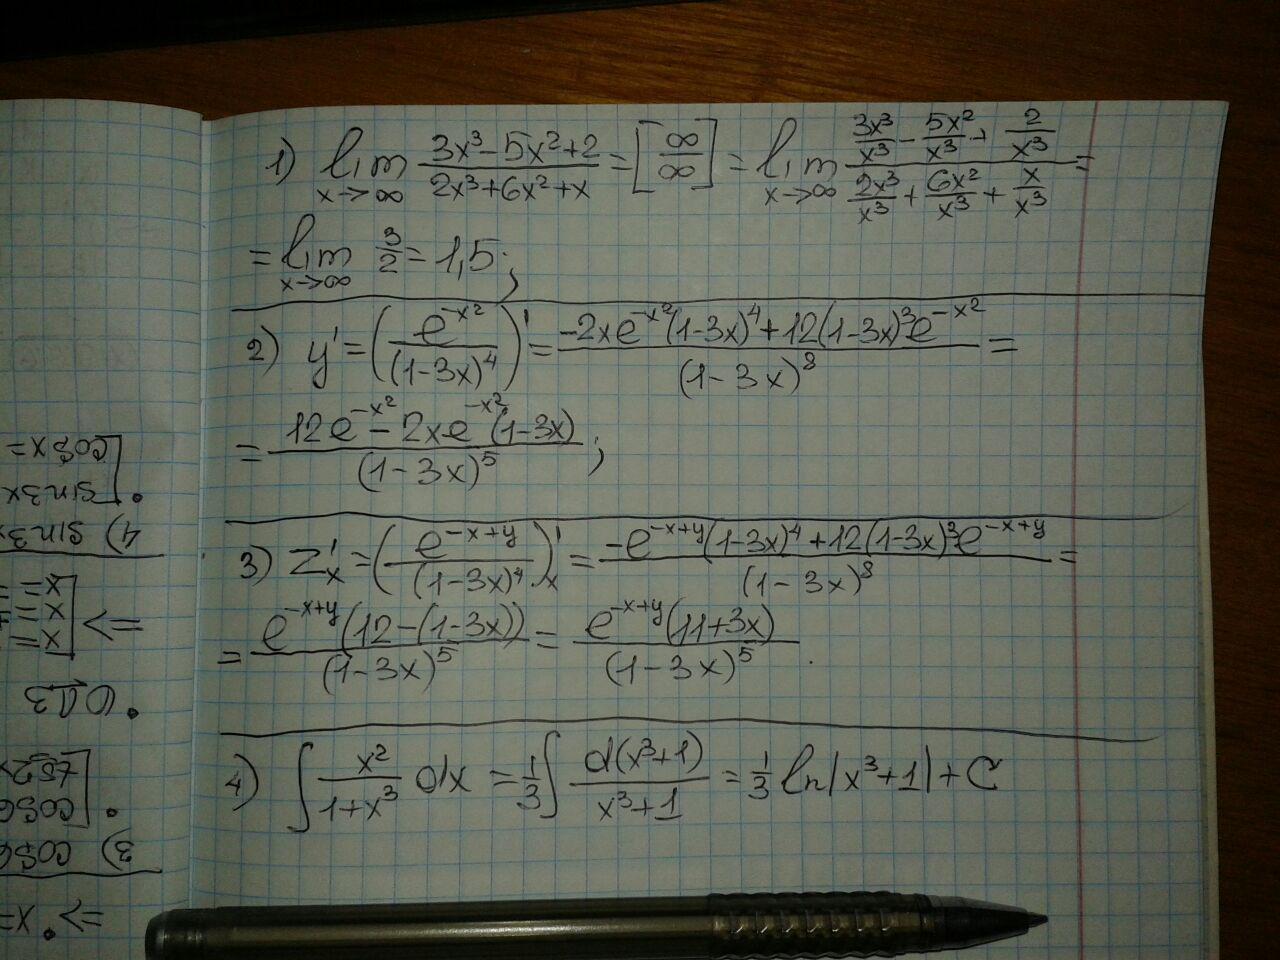 1) lim x→∞ (3x³-5x²+2)/(2x³+6x²+x) = [∞/∞] = lim x→∞ (3x³/x³ - 5x²/x³ + 2/x³)/(2x³/x³ + 6x²/x³ + x/x³) =
= lim x→∞ 3/2 = 1,5;
2) y' = (e^(-x²)/(1-3x)⁴)' = (-2xe^(-x²)(1-3x)⁴+12(1-3x)³e^(-x²))/(1-3x)⁸ =
= (12e^(-x²) - 2xe^(-x²)(1-3x))/(1-3x)⁵;
3) Z'ₓ = (e^(-x+y)/(1-3x)⁴)'ₓ = (-e^(-x+y)(1-3x)⁴+12(1-3x)³e^(-x+y))/(1-3x)⁸ =
= (e^(-x+y)(12-(1-3x)))/(1-3x)⁵ = (e^(-x+y)(11+3x))/(1-3x)⁵.
4) ∫ x²/(1+x³) dx = 1/3 ∫ d(x³+1)/(x³+1) = 1/3 ln|x³+1|+C
=> • x=
3) cos6
• [cos6
tg2x
• ОДЗ
=> [x=
x=
x=
4) sin3x
• [sin3x
cos x=